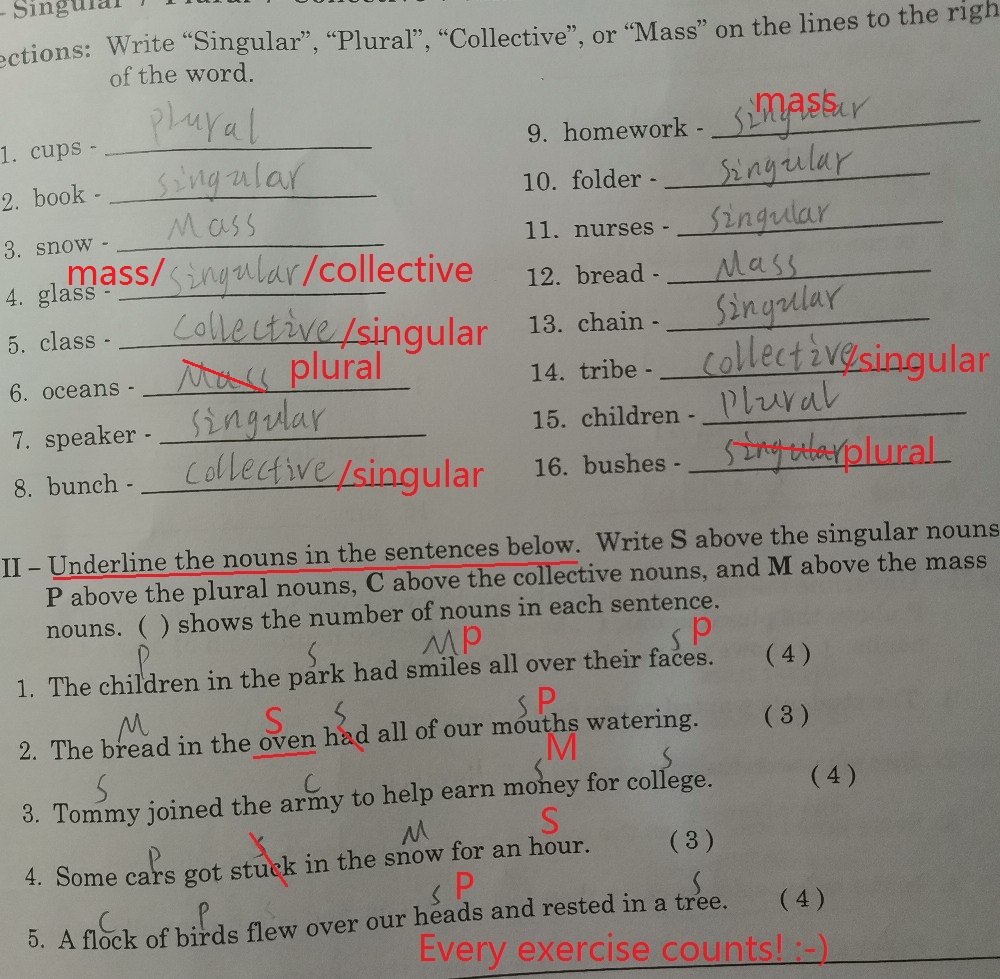 - Singular / Plural / Collective
ections: Write “Singular”, “Plural”, “Collective”, or “Mass” on the lines to the righ
of the word.
1. cups - Plural
2. book - singular
3. snow - Mass
4. glass - mass/singular/collective
5. class - Collective/singular
6. oceans - Mass plural
7. speaker - singular
8. bunch - Collective/singular
9. homework - singular mass
10. folder - singular
11. nurses - singular
12. bread - Mass
13. chain - singular
14. tribe - collective/singular
15. children - Plural
16. bushes - singular plural
II – Underline the nouns in the sentences below. Write S above the singular nouns
P above the plural nouns, C above the collective nouns, and M above the mass
nouns. ( ) shows the number of nouns in each sentence.
P S M p S p
1. The children in the park had smiles all over their faces. (4)
M S S S P
2. The bread in the oven had all of our mouths watering. (3)
S C S M S
3. Tommy joined the army to help earn money for college. (4)
P S M S
4. Some cars got stuck in the snow for an hour. (3)
C P S P S
5. A flock of birds flew over our heads and rested in a tree. (4)
Every exercise counts! :-)